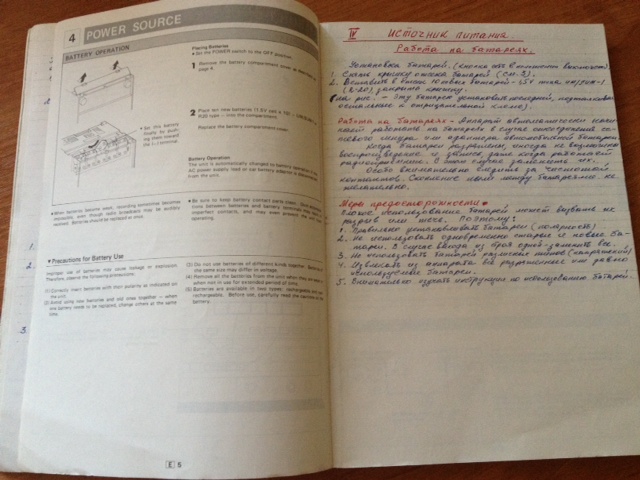 4 POWER SOURCE
BATTERY OPERATION
Placing Batteries
● Set the POWER switch to the OFF position.
1 Remove the battery compartment cover as
page 4.
2 Place ten new batteries (1.5V
type — into the compartment.
Replace the battery compartment cover.
● Set this battery
finally by push-
ing them toward
the (–) terminal.
Battery Operation
The unit is automatically changed to battery operation
AC power supply lead or car battery adaptor is
from the unit.
● When batteries become weak, recording sometimes becomes
even though radio broadcasts may be audibly
received. Batteries should be replaced or
● Be sure to keep battery contact parts clean.
tions between batteries and battery terminals may
imperfect contacts, and may even prevent the unit
operating.
● Precautions for Battery Use
Improper use of batteries may cause leakage or explosion.
Therefore, observe the following precautions:
(1) Correctly insert batteries with their polarity as indicated on
the unit.
(2) Avoid using new batteries and old ones together — when
one battery needs to be replaced, change others at the same
time.
(3) Do not use batteries of different kinds together. Batteries
the same size may differ in voltage.
(4) Remove all the batteries from the unit when they are
when not in use for extended period of time.
(5) Batteries are available in two types: rechargeable and non-
rechargeable. Before use, carefully read the cautions on the
battery.
E 5
1.
2.
3.
IV ИСТОЧНИК ПИТАНИЯ.
Работа на батареях.
Установка батарей. (кнопка
1. Снять крышку отсека батарей (см. 3).
2. Вставить в отсек 10 новых батарей - 1,5V типа
(R-20), закрыть крышку.
на рис. - Эту батарею установить последней, подталкивая
к отрицательной клемме).
Работа на батареях - Аппарат автоматически
работать на батареях в случае отсоединения се-
тевого шнура или адаптера автомобильной батареи
Когда батареи разряжены, иногда не
воспроизведение и запись даже когда работает
радиоприемник. В этом случае замените их.
Особо внимательно следить за чистотой
контактов. Соединение
желательно.
Меры предосторожности
Плохое использование батарей может вызвать их
разрыв или течь. Поэтому:
1. Правильно устанавливать батареи (полярность)
2. Не использовать одновременно старые и новые ба-
тареи. В случае выхода из строя одной - заменить все.
3. Не использовать батареи различных типов (напряжений)
4. Извлекать из аппарата все разряженные или давно
используемые батареи.
5. Внимательно изучать инструкции по использованию батарей.